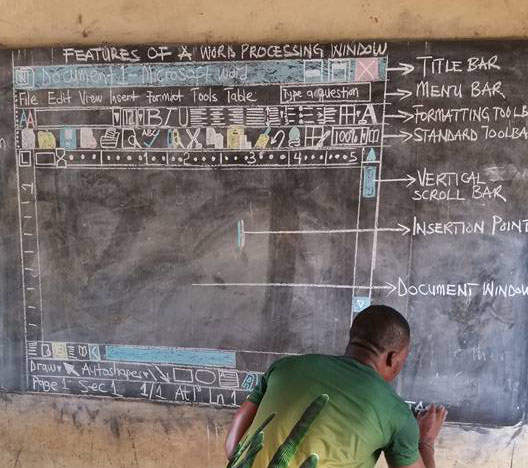 FEATURES OF A WORD PROCESSING WINDOW
W Document 1 - Microsoft Word
TITLE BAR
File Edit View Insert Format Tools Table
Type a question
MENU BAR
AA
B I U
A
FORMATTING TOOLB
ABC
100%
STANDARD TOOLBA
1 2 3 4 5
VERTICAL
SCROLL BAR
INSERTION POINT
DOCUMENT WINDOW
Draw Autoshapes
A
Page 1 Sec 1 1/1 At 1" Ln 1
TA